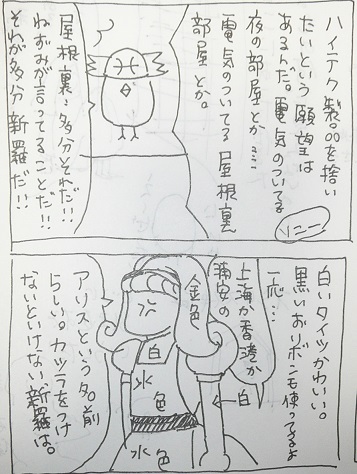 ハイテク製品を捨い
たいという願望は
あるんだ。電気のついてる
夜の部屋とか……
電気のついてる屋根裏
部屋とか。
ソニー
屋根裏、多分それだ!!
ねずみが言ってることだ!!
それが多分新羅だ!!
白いタイツかわいい。
黒いおリボンも使ってるよ
一応…
上海か香港か
浦安の
金色
白
水
色
白
水
色
アリスという名前
らしい。カツラをつけ
ないといけない新羅は。